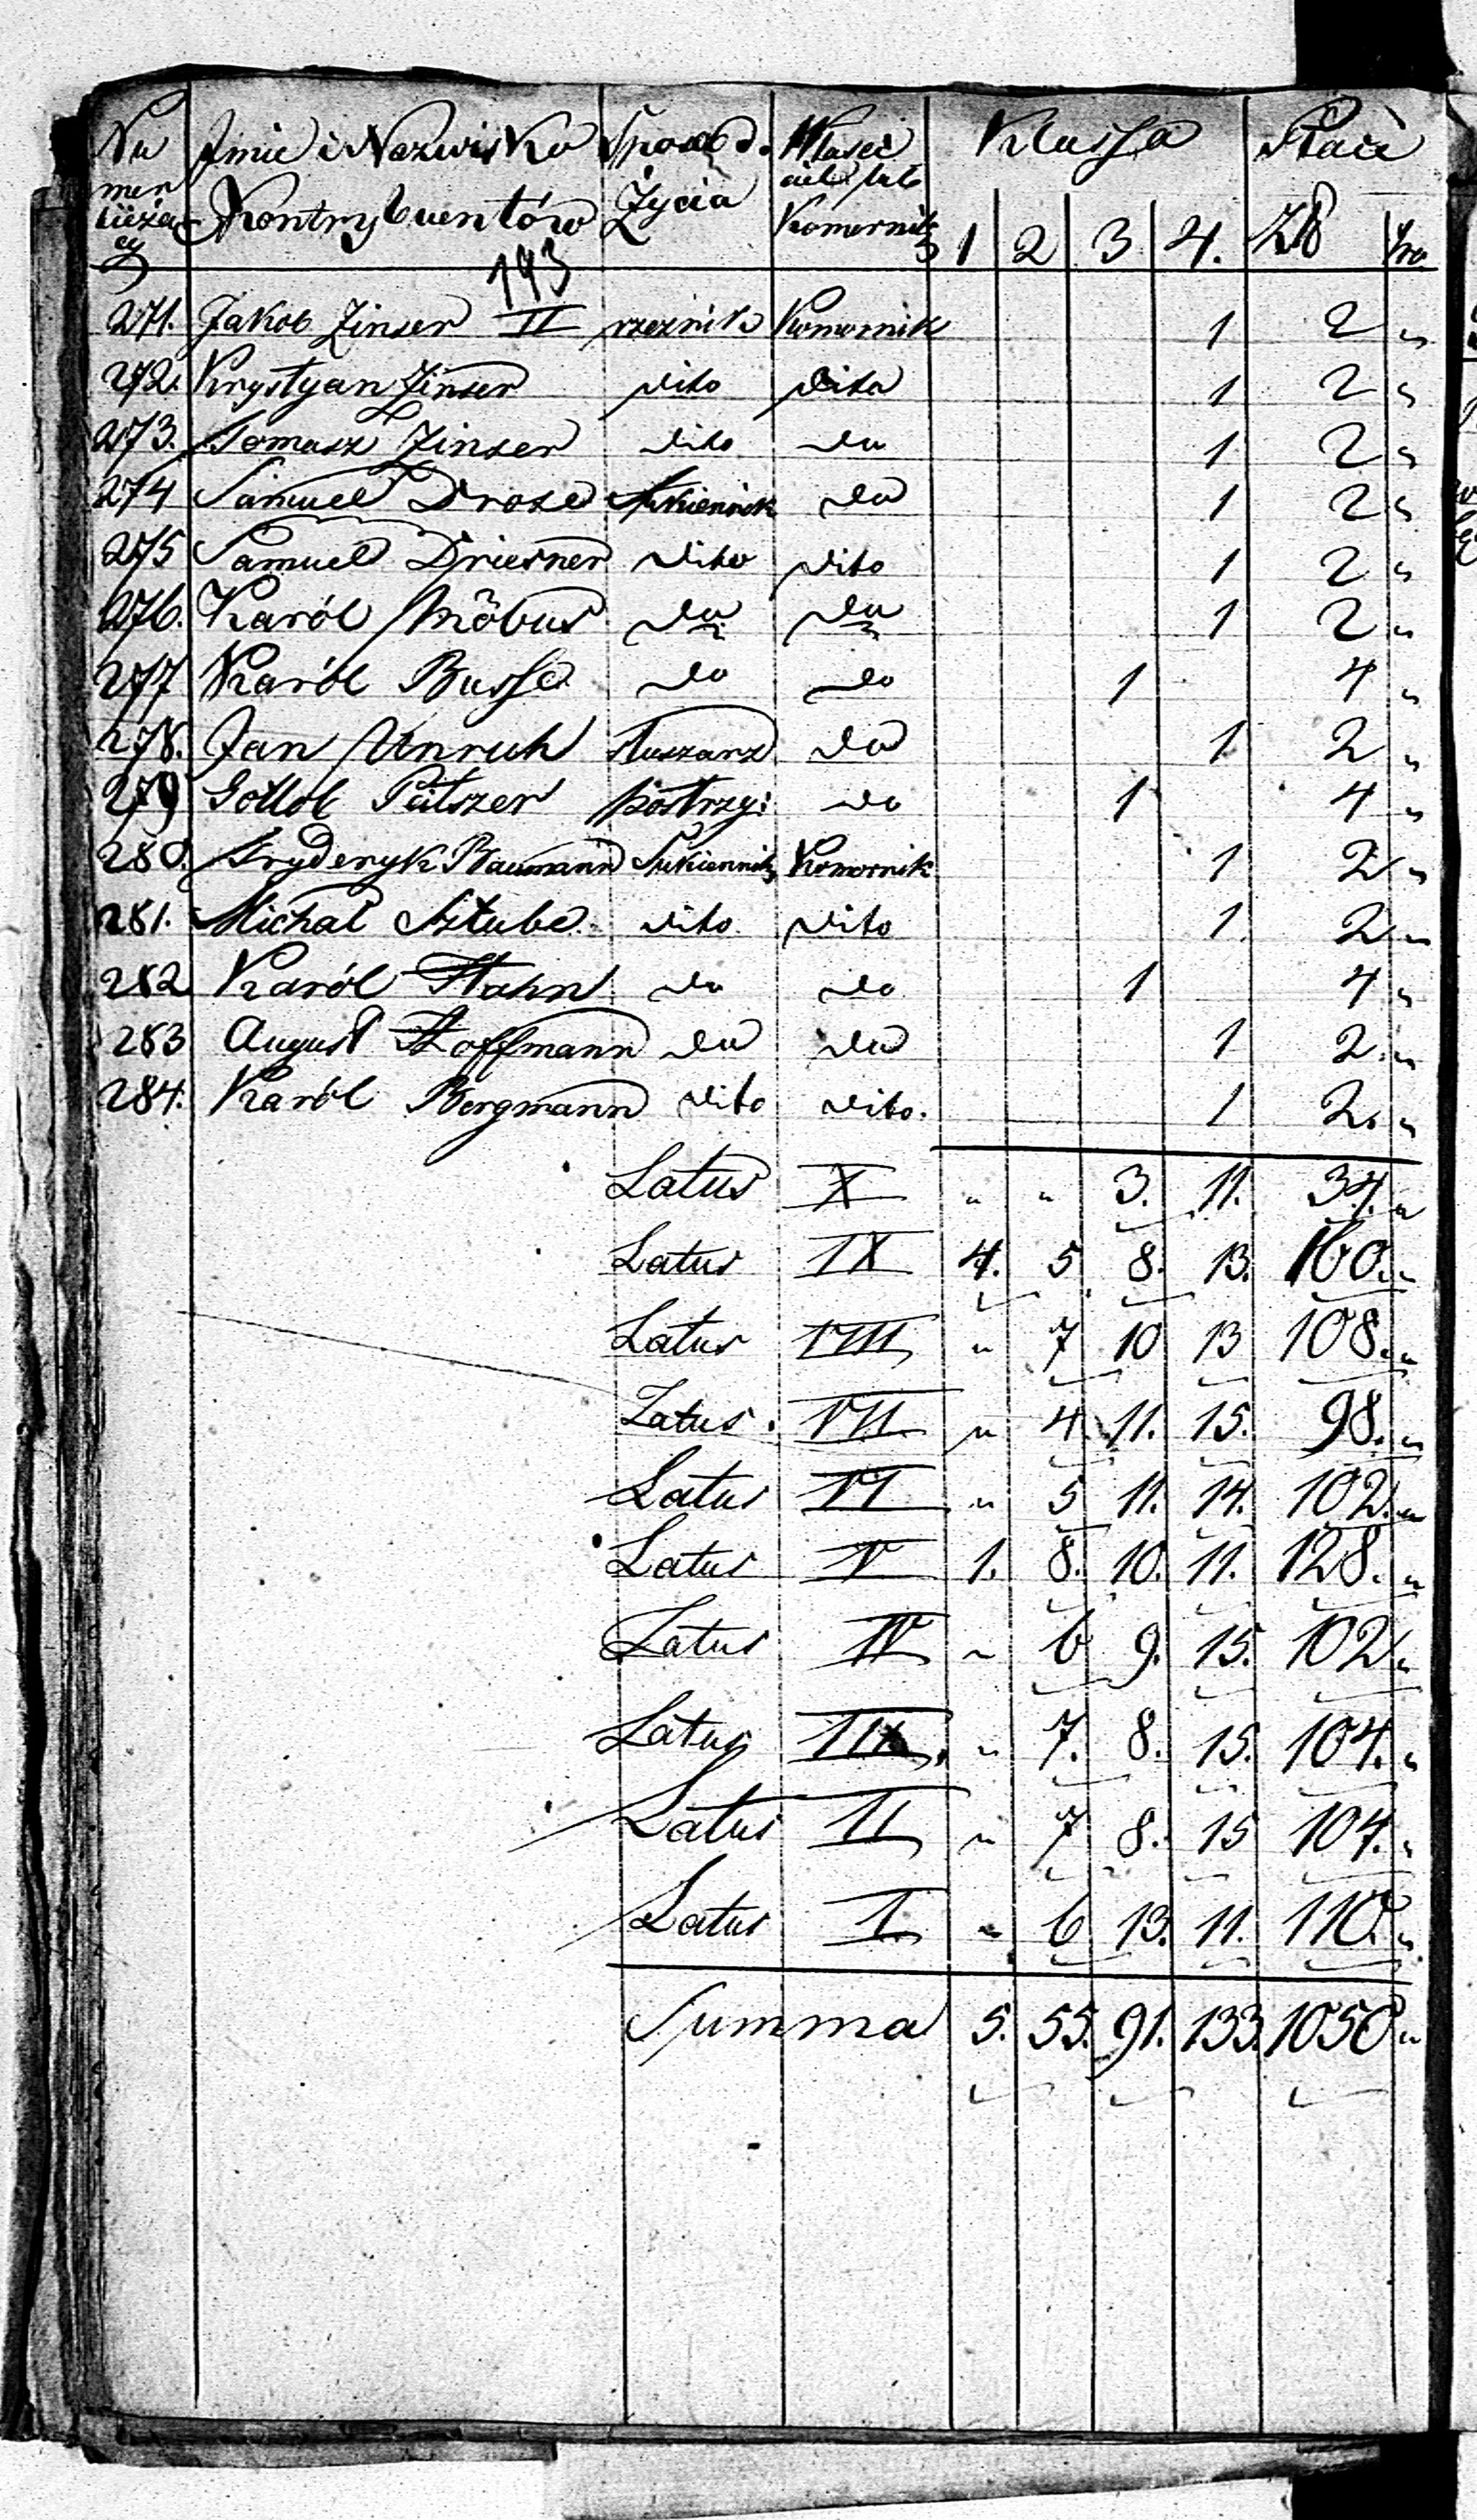 Nu Imie i Nazwisko Sposob. Własci Klassa Płaci
mer życia ciel lub
bieżą Kontrybuentów Komornik 1 2 3 4. Zł gro.
cy
193
271. Jakob Zinser II rzeznik Komornik 1 2 "
272. Krystyan Zinser dito dito 1 2 "
273. Tomasz Zinser dito do 1 2 "
274 Samuel Drose Sukiennik do 1 2 "
275 Samuel Driesner dito dito 1 2 "
276. Karól Möbus do do 1 2 "
277 Karól Busse do do 1 4 "
278. Jan Unruh slusarz do 1 2 "
279 Gottlob postrzyi do 1 4 "
280. Fryderyk Baumann Sukiennik Komornik 1 2 "
281. Michal Sztube dito dito 1 2 "
282 Karól Hahn do do 1 4 "
283 August Hoffmann do do 1 2 "
284. Karól Bergmann dito dito. 1 2. "
Latus X " " 3. 11. 34. "
Latus IX 4. 5 8. 13. 160. "
Latus VIII " 7 10 13 108. "
Latus. VII " 4 11. 15. 98. "
Latus VI " 5 11. 14. 102. "
Latus V 1. 8. 10. 11. 128. "
Latus IV " 6 9. 15. 102 "
Latus III. " 7. 8. 15. 104. "
Latus II " 7 8. 15 104. "
Latus I " 6 13. 11. 110. "
Summa 5. 55. 91. 133. 1050 "